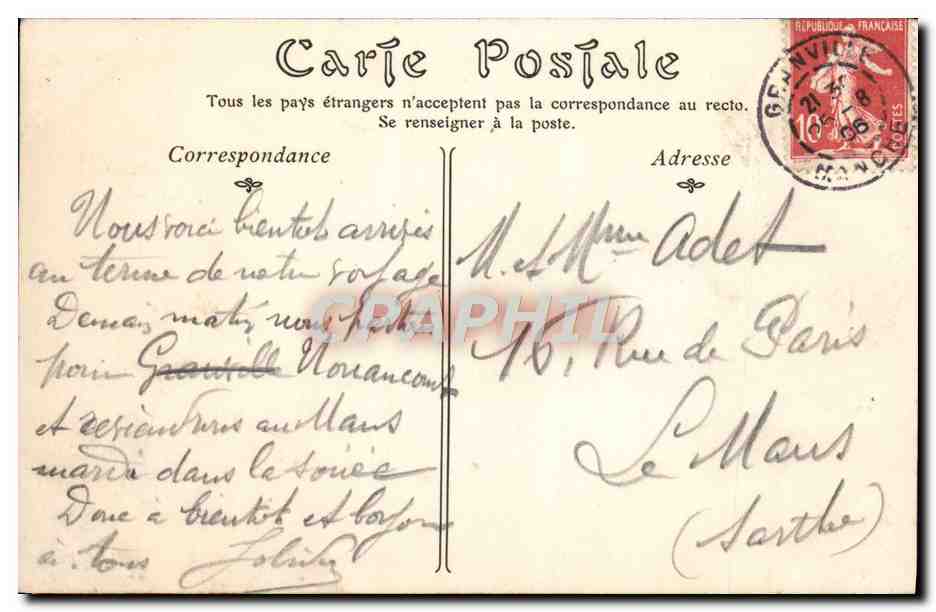 Carte Postale
Tous les pays étrangers n'acceptent pas la correspondance au recto.
Se renseigner à la poste.
Correspondance
Adresse
RÉPUBLIQUE FRANÇAISE
10
POSTES
GRANVILLE
MANCHE
Nous voici bientôt arrivés
au terme de notre voyage
Demain matin nous partons
pour Granville Nonancourt
et reviendrons au Mans
mardi dans la soirée
Donc à bientôt et bonjour
à tous
M. et Mme Adet
16, Rue de Paris
Le Mans
(Sarthe)
CPAPHIL